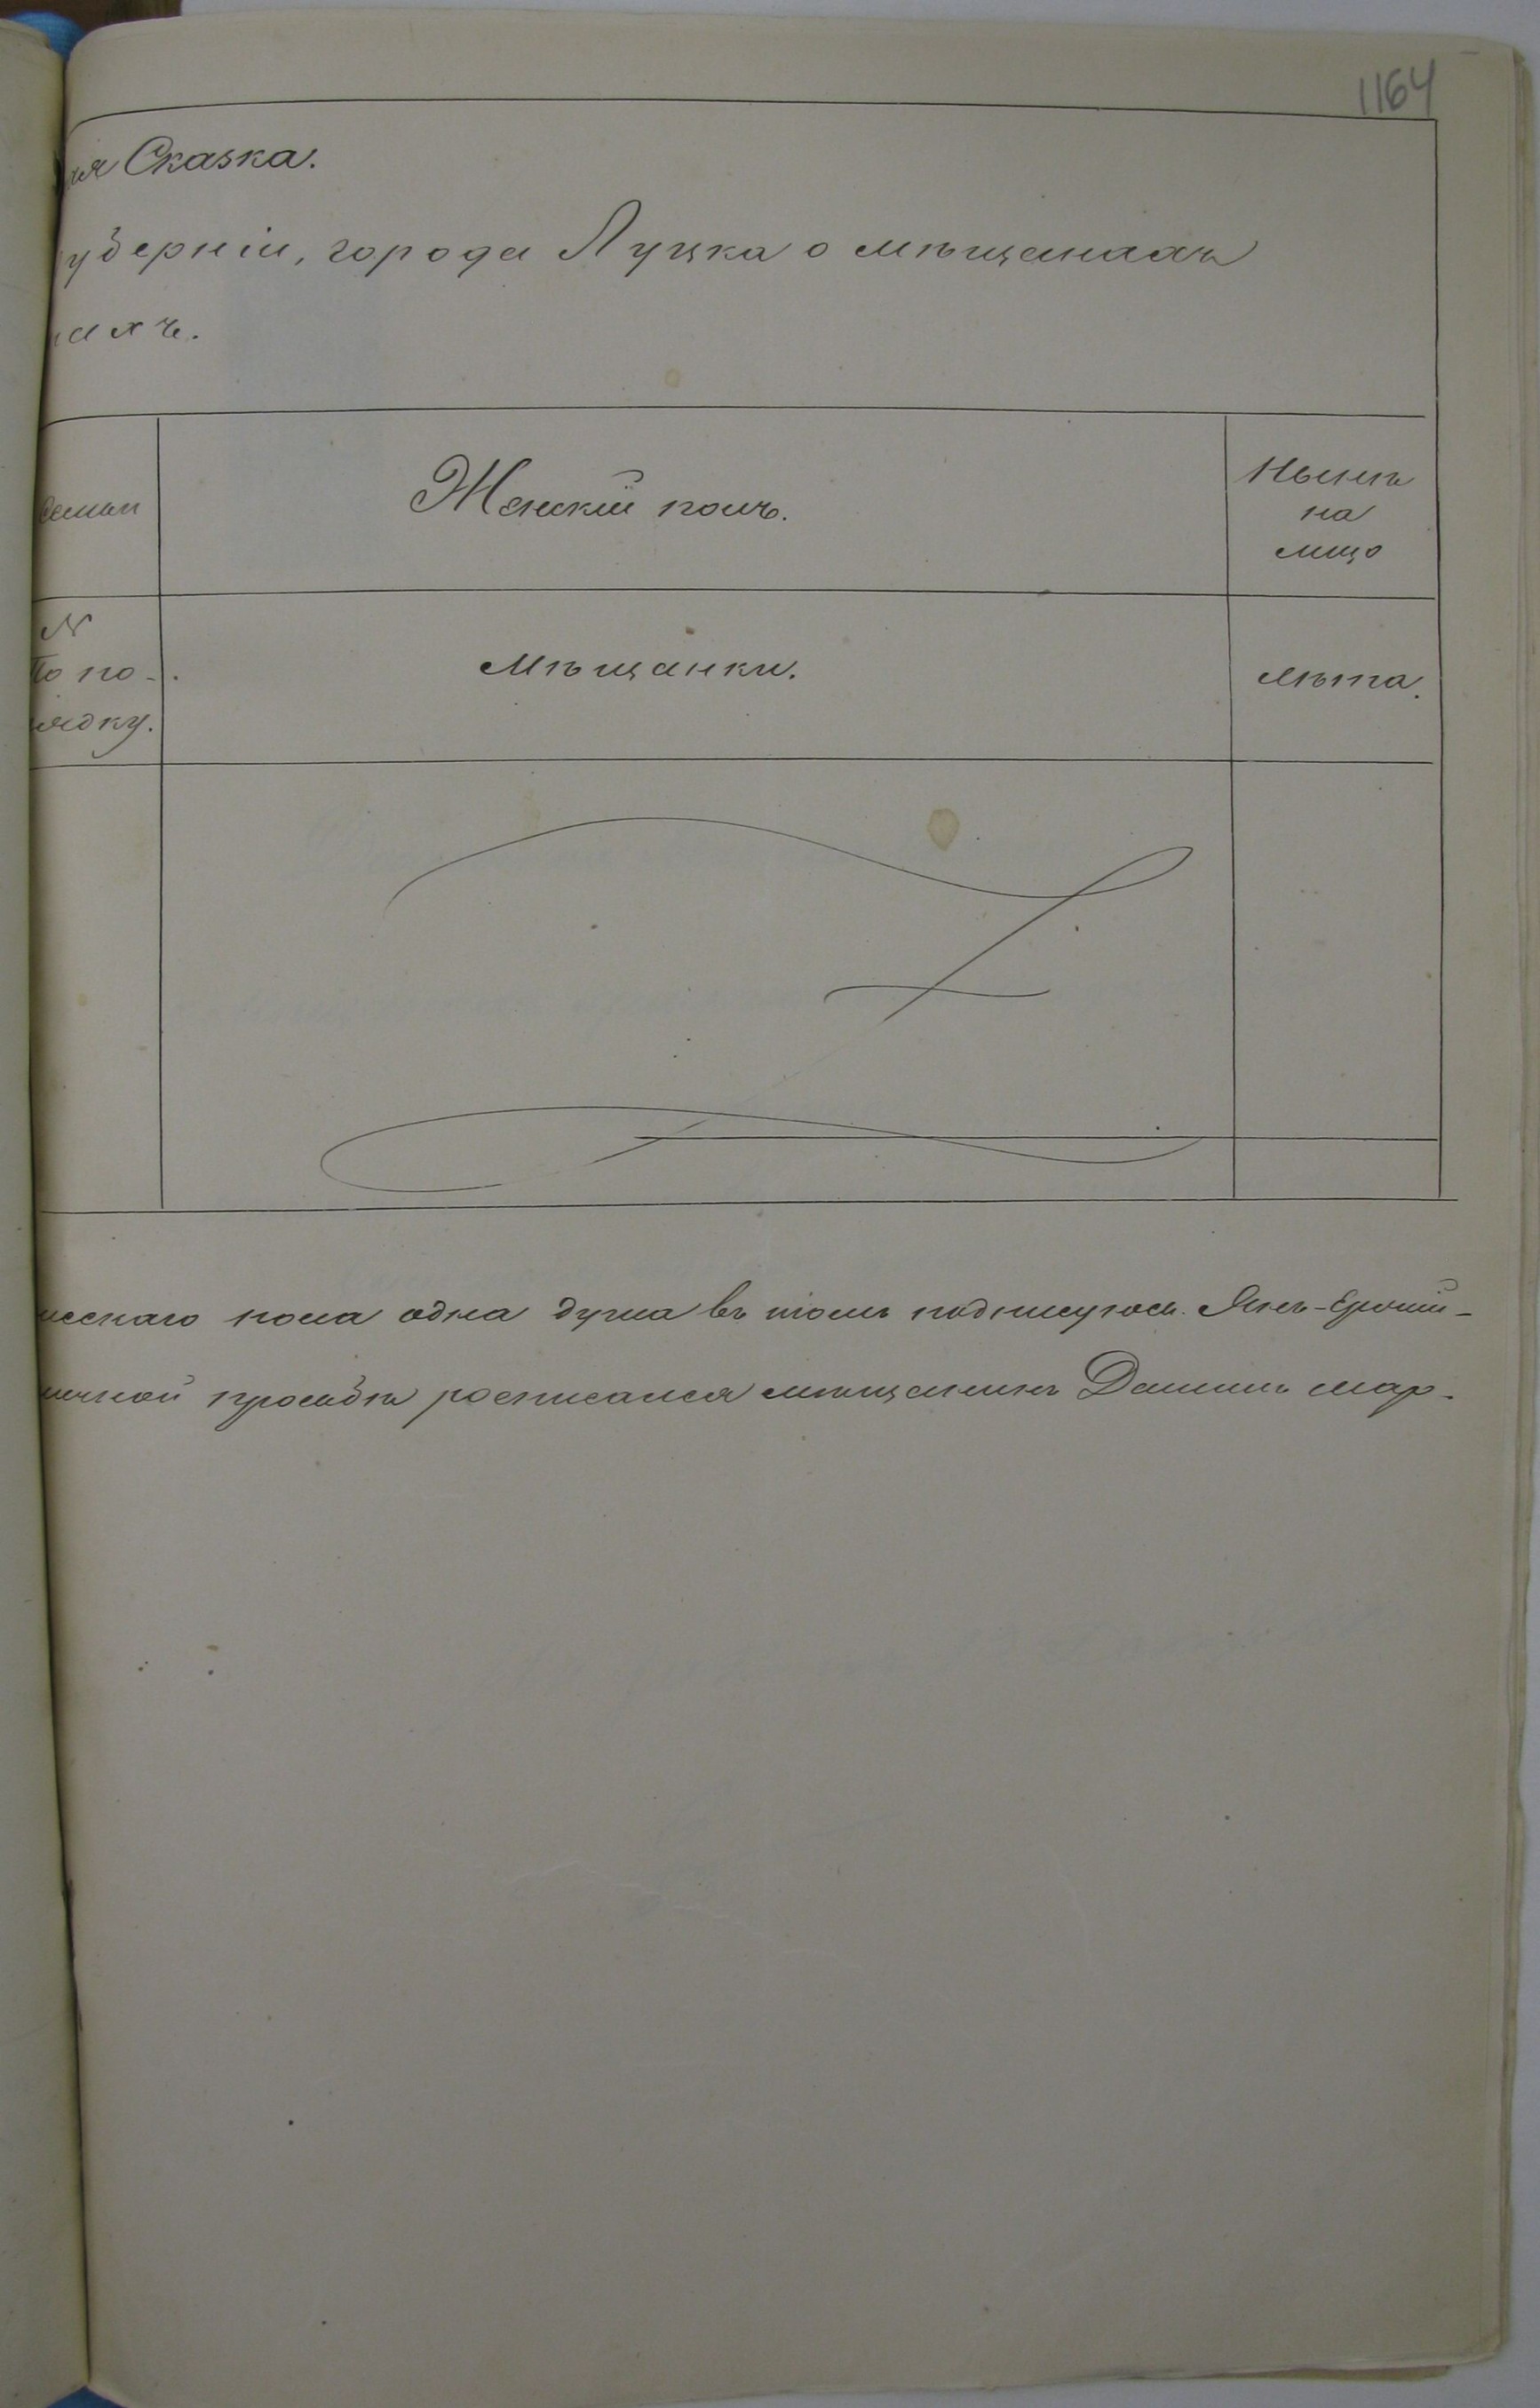 1164
ия Сказка.
уберніи, города Луцка о мѣщанахъ
ахъ.
Семьи
Женскій полъ.
Нынѣ
на
лицо
№
по по-
рядку.
Мѣщанки.
Лѣта.
жескаго пола одна душа въ томъ подписуюсь. Янъ-
личной просьбѣ росписался мѣщанинъ Даниилъ Мар-